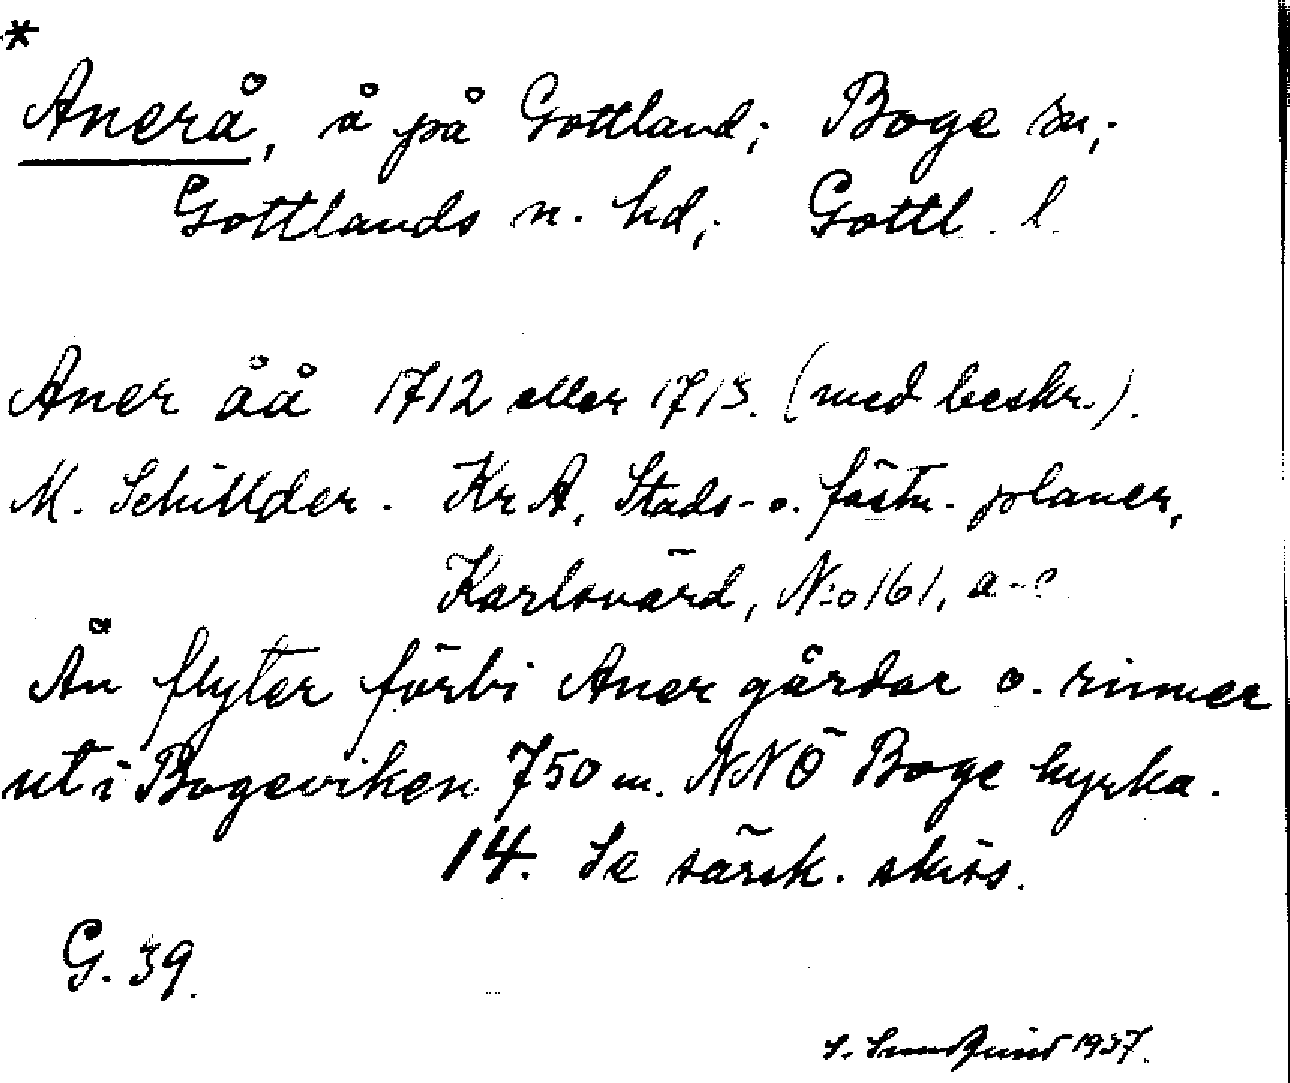 *
Anerå, å på Gottland; Boge sn;
Gottlands n. hd; Gottl. l.
Aner åå 1712 eller 1713. (med beskr.).
M. Schillder. Kr A, Stads- o. fästn. planer,
Karlsvärd, N:o 161, a-c
Ån flyter förbi Aner gårdar o. rinner
ut i Bogeviken 750 m. NNÖ Boge kyrka.
14. Se särsk. skiss.
G. 39.
S. 1937.